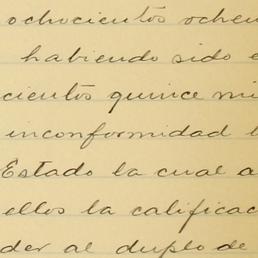 ochocientos ochen
habiendo sido e
cientos quince mi
inconformidad l
Estado la cual a
ellos la calificac
der al duplo de